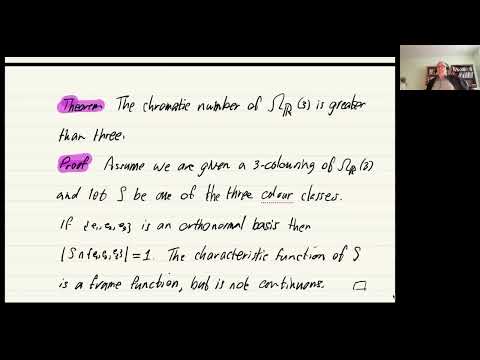 Theorem The chromatic number of Ω_ℝ(3) is greater
than three.
Proof Assume we are given a 3-colouring of Ω_ℝ(3)
and let S be one of the three colour classes.
If {e₁, e₂, e₃} is an orthonormal basis then
|S∩{e₁,e₂,e₃}| = 1. The characteristic function of S
is a frame function, but is not continuous. □